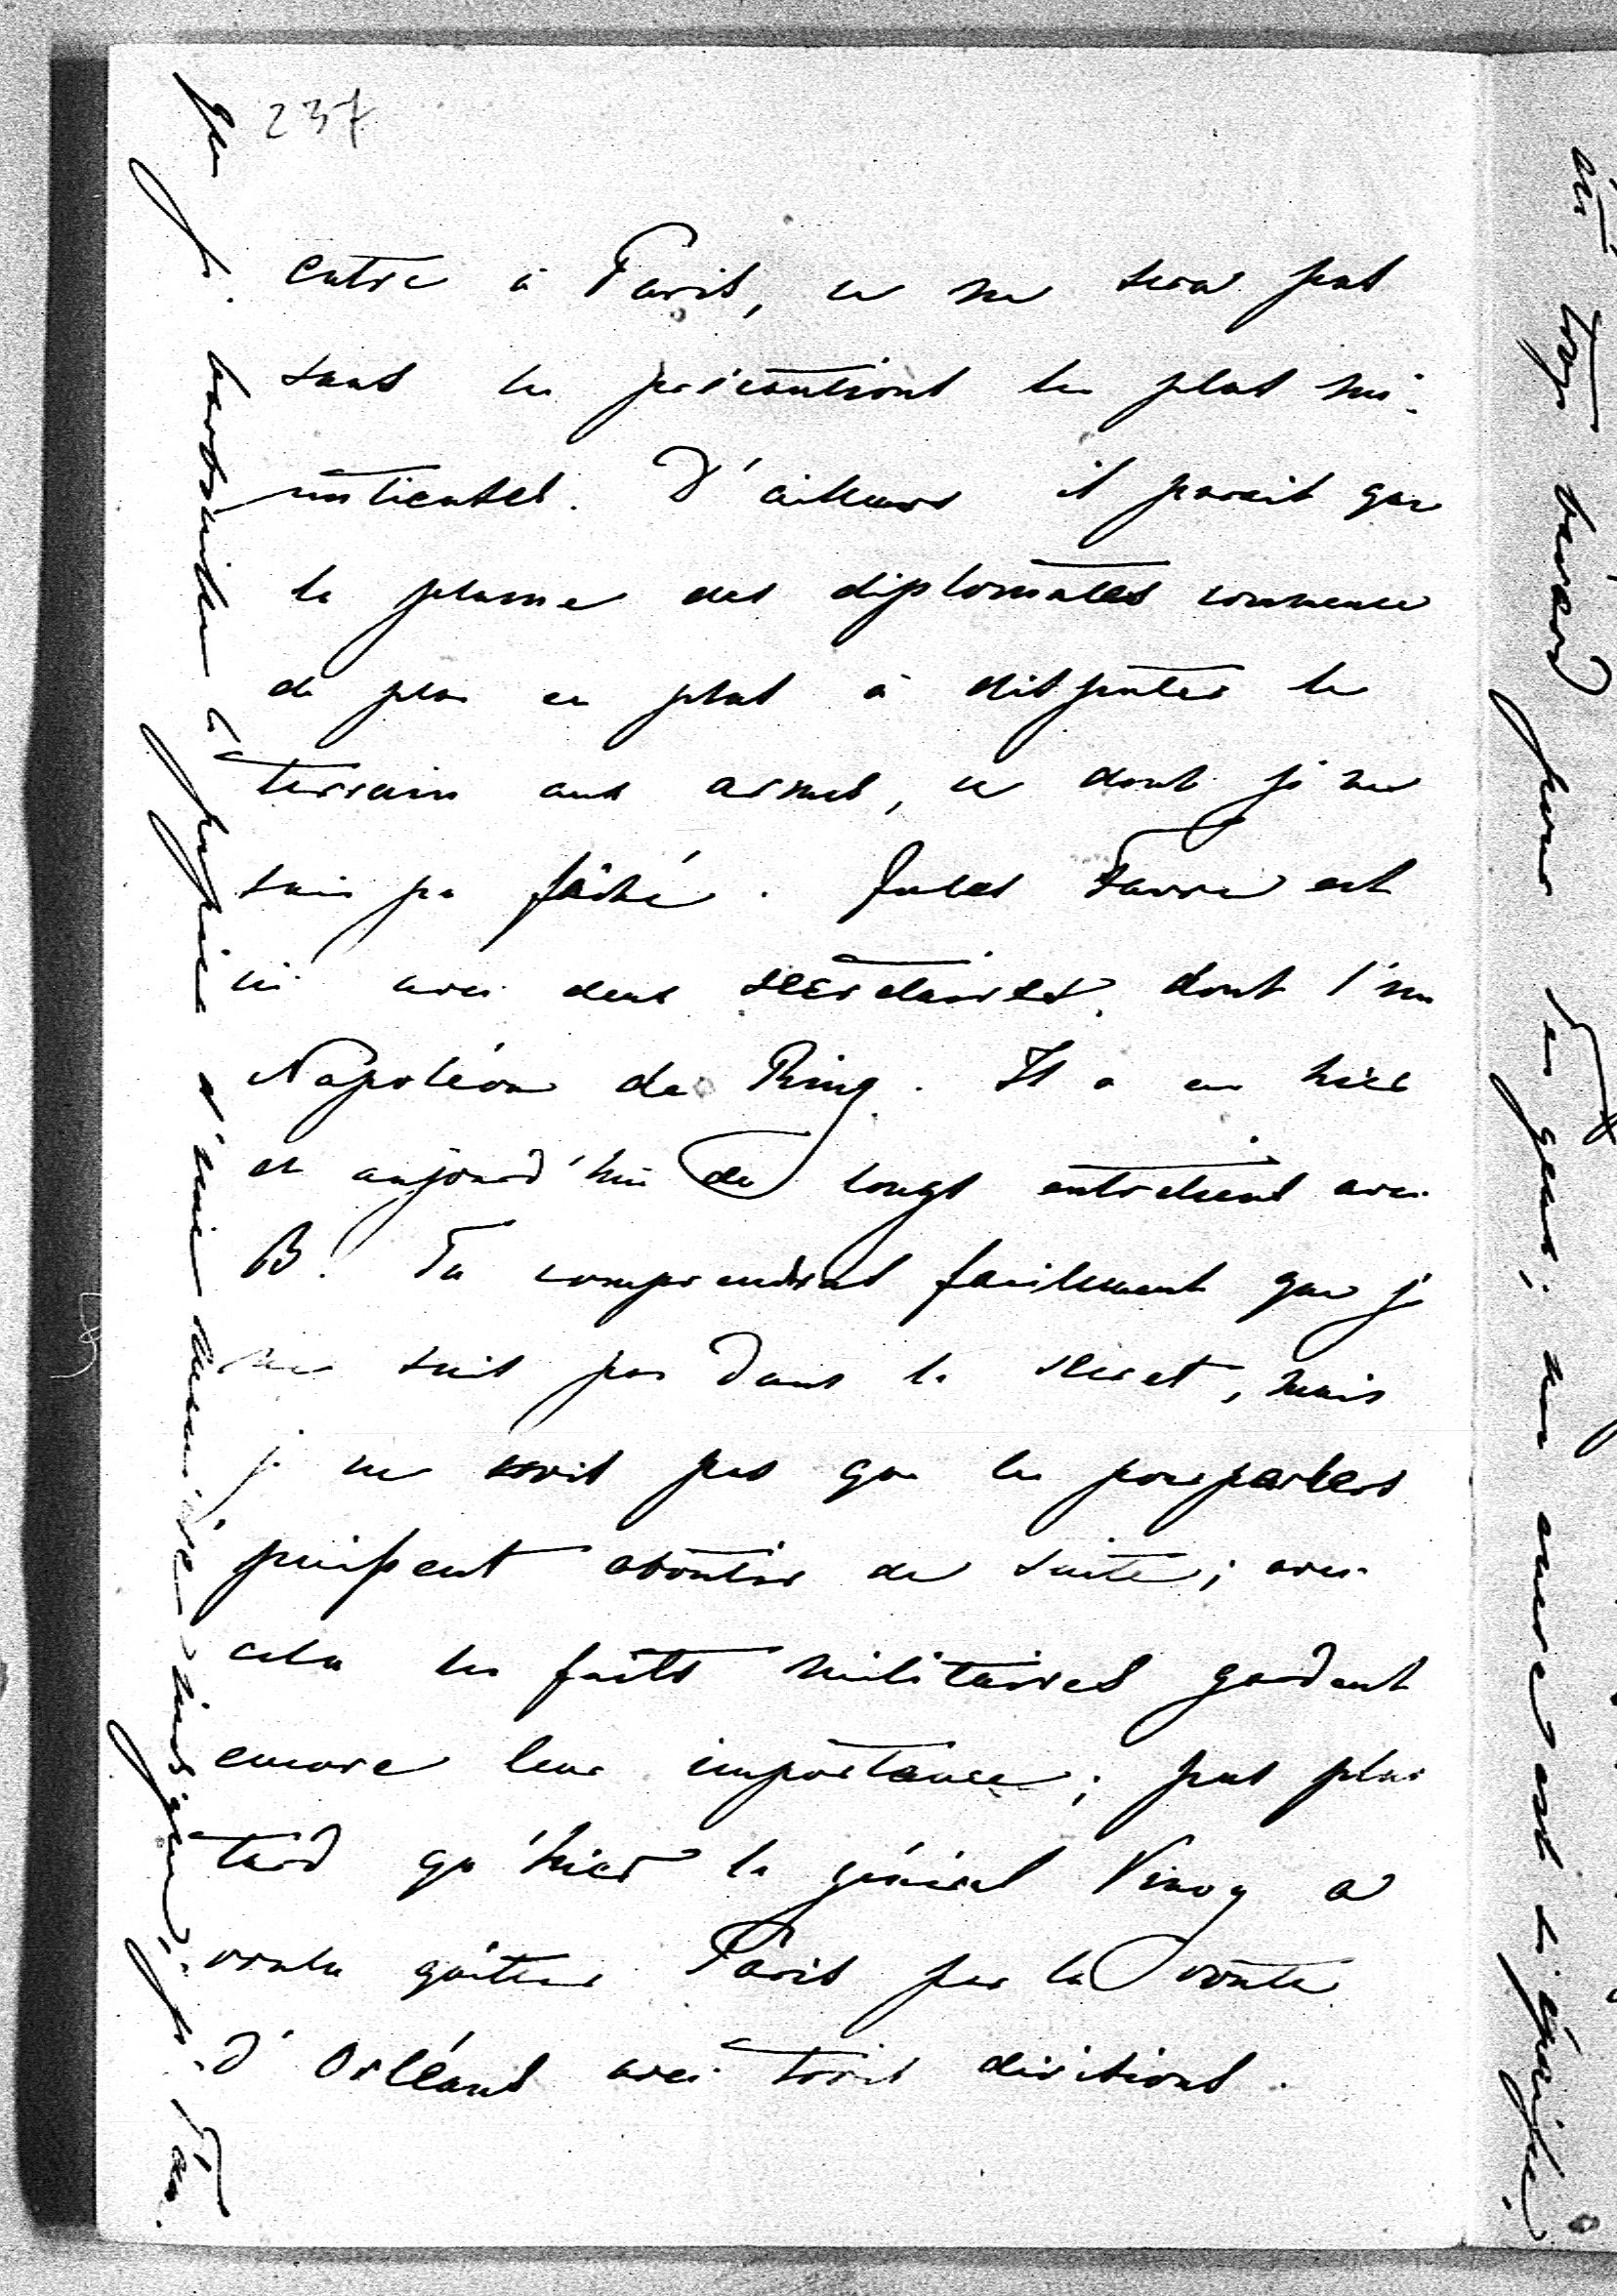 237
entre à Paris, ce ne sera pas
sans les précautions les plus mi-
nutieuses. D'ailleurs il parait que
la plume des diplomates commence
de plus en plus à disputer le
terrain aux armes, ce dont je ne
suis pas fâché. Jules Favre est
ici avec deux secrétaires, dont l'un
Napoléon de Ring. Il a eu hier
et aujourd'hui de longs entretiens avec
B. Tu comprendras facilement que je
ne suis pas dans le secret, mais
je ne crois pas que les pourparlers
puissent aboutir de suite; avec
cela les faits militaires gardent
encore leur importance; pas plus
tard qu'hier le général Vinoy a
voulu quitter Paris par la route
d'Orléans avec trois divisions.
barbouiller le papier d'une manière
trop bavard pour ; mon encre est si épaisse.